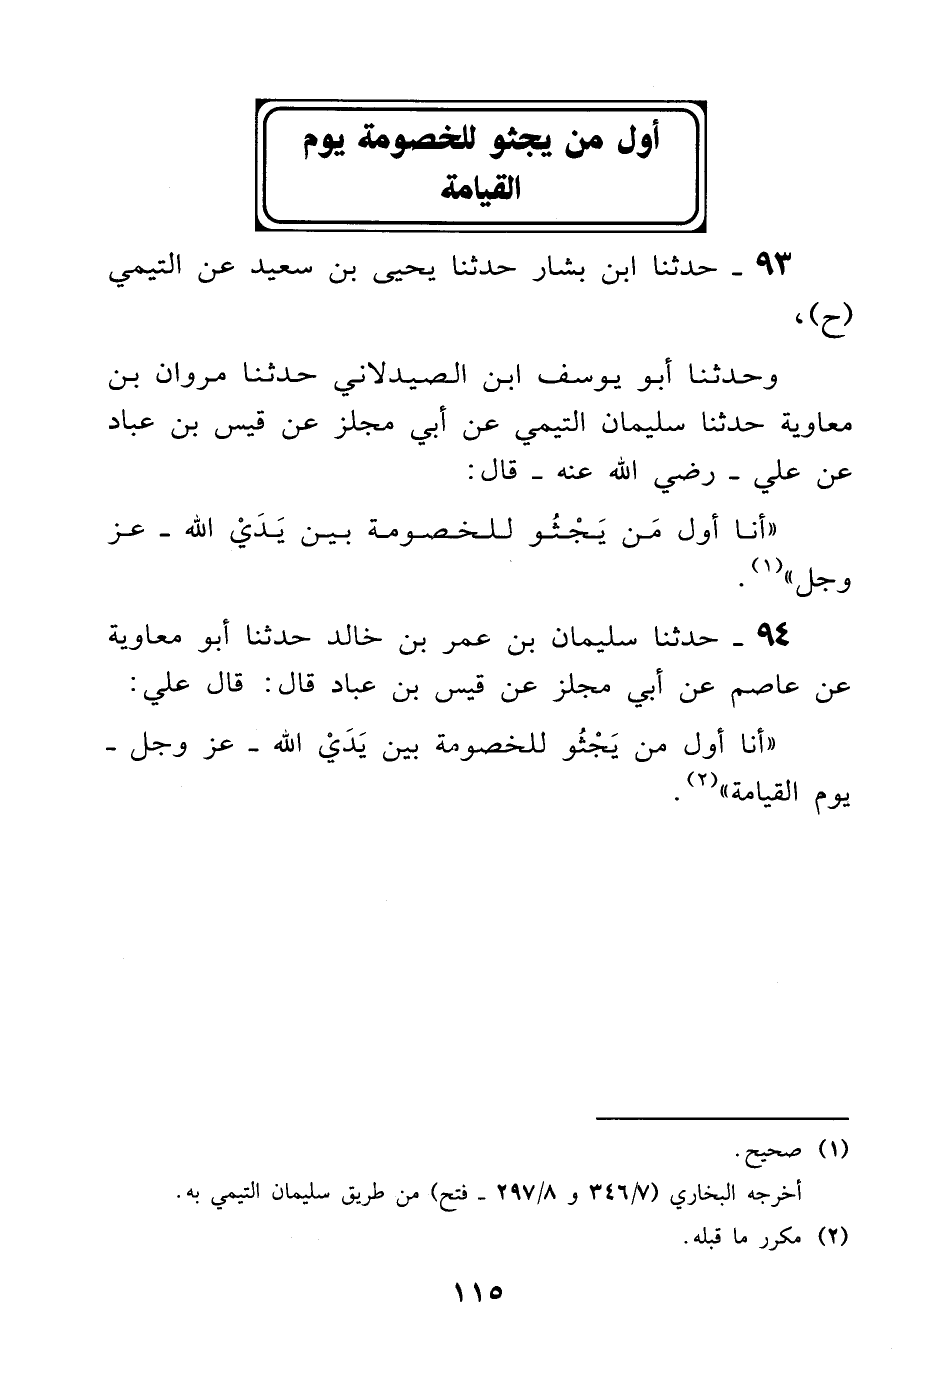 أول من يجثو للخصومة يوم
القيامة
٩٣ ـ حدثنا ابن بشار حدثنا يحيى بن سعيد عن التيمي
(ح)،
وحدثنا أبو يوسف ابن الصيدلاني حدثنا مروان بن
معاوية حدثنا سليمان التيمي عن أبي مجلز عن قيس بن عباد
عن علي ـ رضي الله عنه ـ قال:
«أنا أول مَن يَجْثُو للخصومة بين يَدَيْ الله ـ عز
وجل»(١).
٩٤ ـ حدثنا سليمان بن عمر بن خالد حدثنا أبو معاوية
عن عاصم عن أبي مجلز عن قيس بن عباد قال: قال علي:
«أنا أول من يَجْثُو للخصومة بين يَدَيْ الله ـ عز وجل ـ
يوم القيامة»(٢).
(١) صحيح.
أخرجه البخاري (٣٤٦/٧ و ٢٩٧/٨ ـ فتح) من طريق سليمان التيمي به.
(٢) مكرر ما قبله.
١١٥